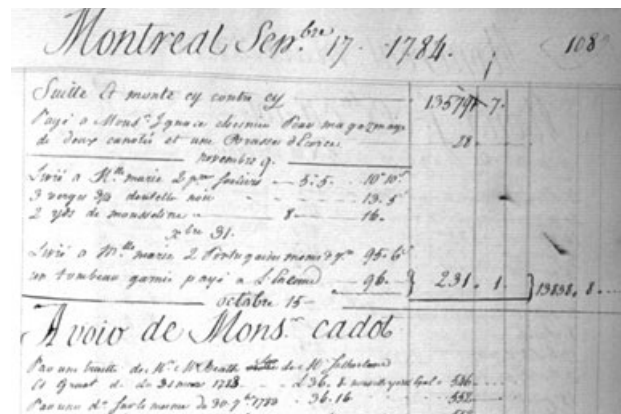 Montreal Sep.bre 17. 1784. 108
Suitte Et monte cy contre cy 13579 7.
Payé a Mons.r Ignace chesnier Pour magazinage
de deux canots et une Brasses d'Ecorce 28.
novembre 9.
Livré a M.lle marie 2 p.res souliers 5.5. 10 10
3 verges 3/4 dentelle noir 13.5
2 yds de mousseline 8 16.
x.bre 31.
Livré a M.lle marie 2 Portugaises 95.6
un tombeau garnie payé a 96. 231. 1. 13838. 8.
octobre 15
Avoir de Mons.r cadot
Par une traitte de M.r de M.r Sutherland
Et Grant d. 36. 586
Par une d.o sur le meme du 30. 7.bre 36.16 552